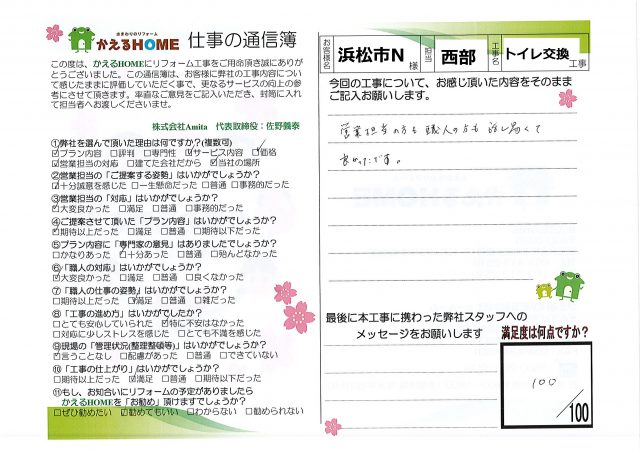 住まいのリフォーム
かえるHOME 仕事の通信簿
この度は、かえるHOMEにリフォーム工事をご用命頂き誠にありが
とうございました。この通信簿は、お客様に弊社の工事内容につい
て感じたままに評価していただく事で、更なるサービスの向上の参
考にさせて頂きます。率直なご意見をご記入いただき、封筒に入れ
て担当者へお渡しくださいませ。
株式会社Amita 代表取締役:佐野義泰
①弊社を選んで頂いた理由は何ですか?(複数可)
☑プラン内容 □評判 □専門性 ☑サービス内容 ☑価格
☑営業担当の対応 □建てた会社だから ☑当社の場所
②営業担当の「ご提案する姿勢」はいかがでしょうか?
☑十分誠意を感じた □一生懸命だった □普通 □事務的だった
③営業担当の「対応」はいかがでしょうか?
☑大変良かった □満足 □普通 □事務的だった
④ご提案させて頂いた「プラン内容」はいかがでしょうか?
☑期待以上だった □満足 □普通 □期待以下だった
⑤プラン内容に「専門家の意見」はありましたでしょうか?
□かなりあった ☑十分あった □普通 □殆んどなかった
⑥「職人の対応」はいかがでしょうか?
☑大変良かった □満足 □普通 □良くなかった
⑦「職人の仕事の姿勢」はいかがでしょうか?
□期待以上だった ☑満足 □普通 □雑だった
⑧「工事の進め方」はいかがでしたか?
□とても安心していられた ☑特に不安はなかった
□対応に少しストレスを感じた □とても不満を感じた
⑨現場の「管理状況(整理整頓等)」はいかがでしょうか?
☑言うことなし □配慮があった □普通 □できていない
⑩「工事の仕上がり」はいかがでしょうか?
□期待以上だった ☑満足 □普通 □期待以下だった
⑪もし、お知合いにリフォームの予定がありましたら
かえるHOMEを「お勧め」頂けますでしょうか?
□ぜひ勧めたい ☑勧めてもいい □わからない □勧められない
お客様名 浜松市N 様 担当 西部 工事名 トイレ交換 工事
今回の工事について、お感じ頂いた内容をそのまま
ご記入お願いします。
営業担当の方も職人の方も話し易くて
良かったです。
最後に本工事に携わった弊社スタッフへの
メッセージをお願いします
満足度は何点ですか?
100
/100